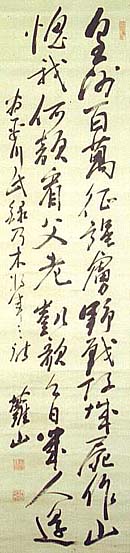 皇師百萬征強虜野戰攻城屍作山
愧我何顔看父老凱歌今日幾人還
為平川氏録乃木将軍之詩